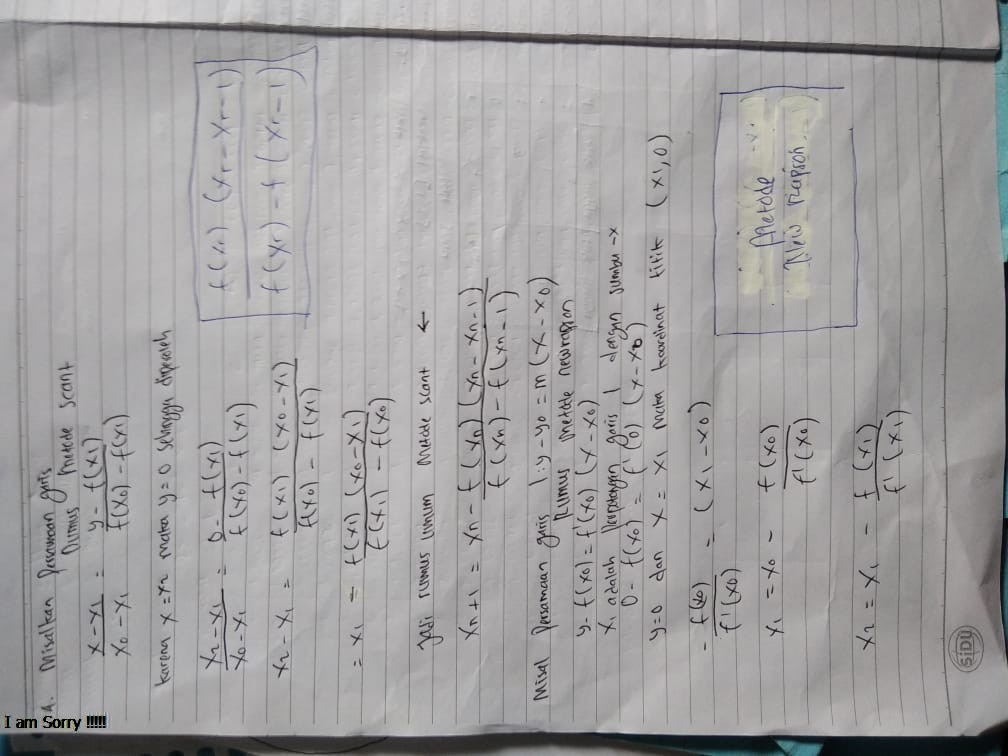 A. Misalkan Persamaan garis
Rumus Metode scant
x - x1 / x0 - x1 = y - f(x1) / f(x0) - f(x1)
karena x = x2 maka y = 0 sehingga diperoleh
x2 - x1 / x0 - x1 = 0 - f(x1) / f(x0) - f(x1)
x2 - x1 = f(x1) (x0 - x1) / f(x0) - f(x1)
f(xr) (xr - xr-1) / f(xr) - f(xr-1)
= x1 - f(x1) (x0 - x1) / f(x1) - f(x0)
Jadi rumus umum Metode scant ←
xn+1 = xn - f(xn) (xn - xn-1) / f(xn) - f(xn-1)
Misal Persamaan garis l: y - y0 = m (x - x0)
Rumus Metode newrapson
y - f(x0) = f'(x0) (x - x0)
x1 adalah Perpotongan garis l dengan sumbu -x
0 - f(x0) = f'(0) (x - x0)
y = 0 dan x = x1 maka koordinat titik (x1, 0)
- f(x0) / f'(x0) = (x1 - x0)
Metode
New Rapson
x1 = x0 - f(x0) / f'(x0)
x2 = x1 - f(x1) / f'(x1)
SiDU
I am Sorry !!!!!